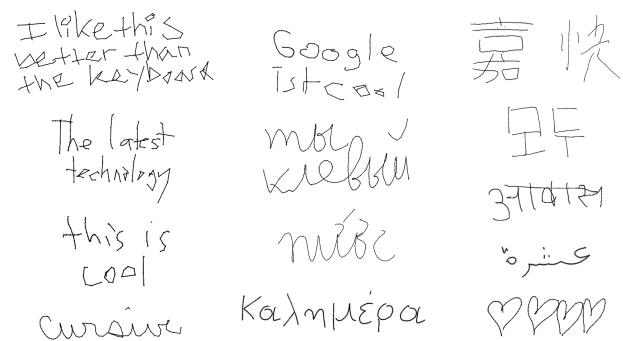 I like this
better than
the keyboard
The latest
technology
this is
cool
cursive
Google
ist cool
ты
клевый
nuôc
Καλημέρα
嘉 快
모두
आवास
عشرة
♡♡♡♡